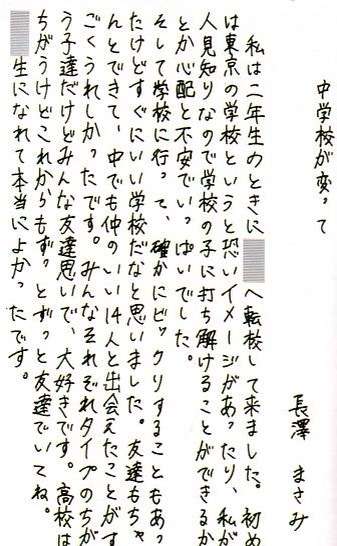 中学校が変って
長澤 まさみ
私は二年生のときに　へ転校して来ました。初め
は東京の学校というと恐いイメージがあったり、私が
人見知りなので学校の子に打ち解けることができるか
とか心配と不安でいっぱいでした。
そして学校に行って、確かにビックリすることもあっ
たけどすぐにいい学校だなと思いました。友達もちゃ
んとできて、中でも仲のいい14人と出会えたことがす
ごくうれしかったです。みんなそれぞれタイプのちが
う子達だけどみんな友達思いで、大好きです。高校は
ちがうけどこれからもずっとずっと友達でいてね。
生になれて本当によかったです。